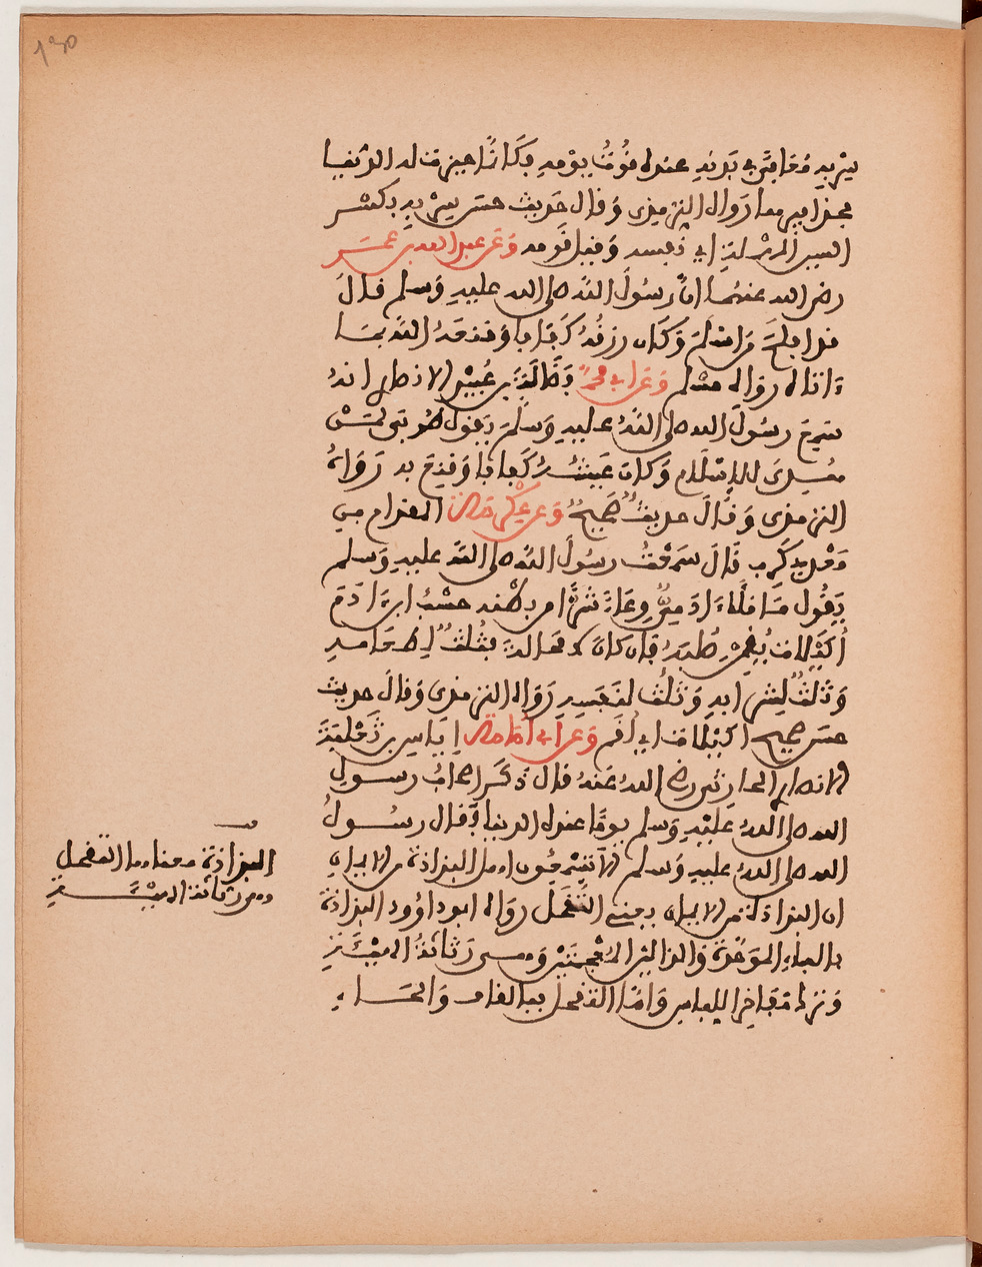 سربه معافى في بدنه عنده قوت يومه فكأنما حيزت له الدنيا
بحذافيرها رواه الترمذي وقال حديث حسن سربه بكسر
السين المهملة اي نفسه وقيل قومه وعن عبد الله بن عمر
رضي الله عنهما ان رسول الله صلى الله عليه وسلم قال
قد افلح من اسلم وكان رزقه كفافا وقنعه الله بما
ءاتاه رواه مسلم وعن ابي محمد فضالة بن عبيد الانصاري انه
سمع رسول الله صلى الله عليه وسلم يقول طوبى لمن
هدي للاسلام وكان عيشه كفافا وقنع به رواه
الترمذي وقال حديث صحيح وعن كريمة المقدام بن
معد يكرب قال سمعت رسول الله صلى الله عليه وسلم
يقول ما ملأ ءادمي وعاء شرا من بطنه حسب ابن ءادم
أكيلات يقمن صلبه فان كان لا محالة فثلث لطعامه
وثلث لشرابه وثلث لنفسه رواه الترمذي وقال حديث
حسن صحيح اكيلات اي لقم وعن ابي امامة اياس بن ثعلبة
الانصاري الحارثي رضي الله عنه قال ذكر اصحاب رسول
الله صلى الله عليه وسلم يوما عنده الدنيا فقال رسول
الله صلى الله عليه وسلم ألا تسمعون ان البذاذة من الايمان
ان البذاذة من الايمان يعني التقحل رواه ابو داوود البذاذة
بالباء الموحدة والذالين المعجمتين وهي رثاثة الهيئة
وترك فاخر اللباس واما التقحل فبالقاف والحاء
البذاذة معناها التقحل
وهي رثاثة الهيئة